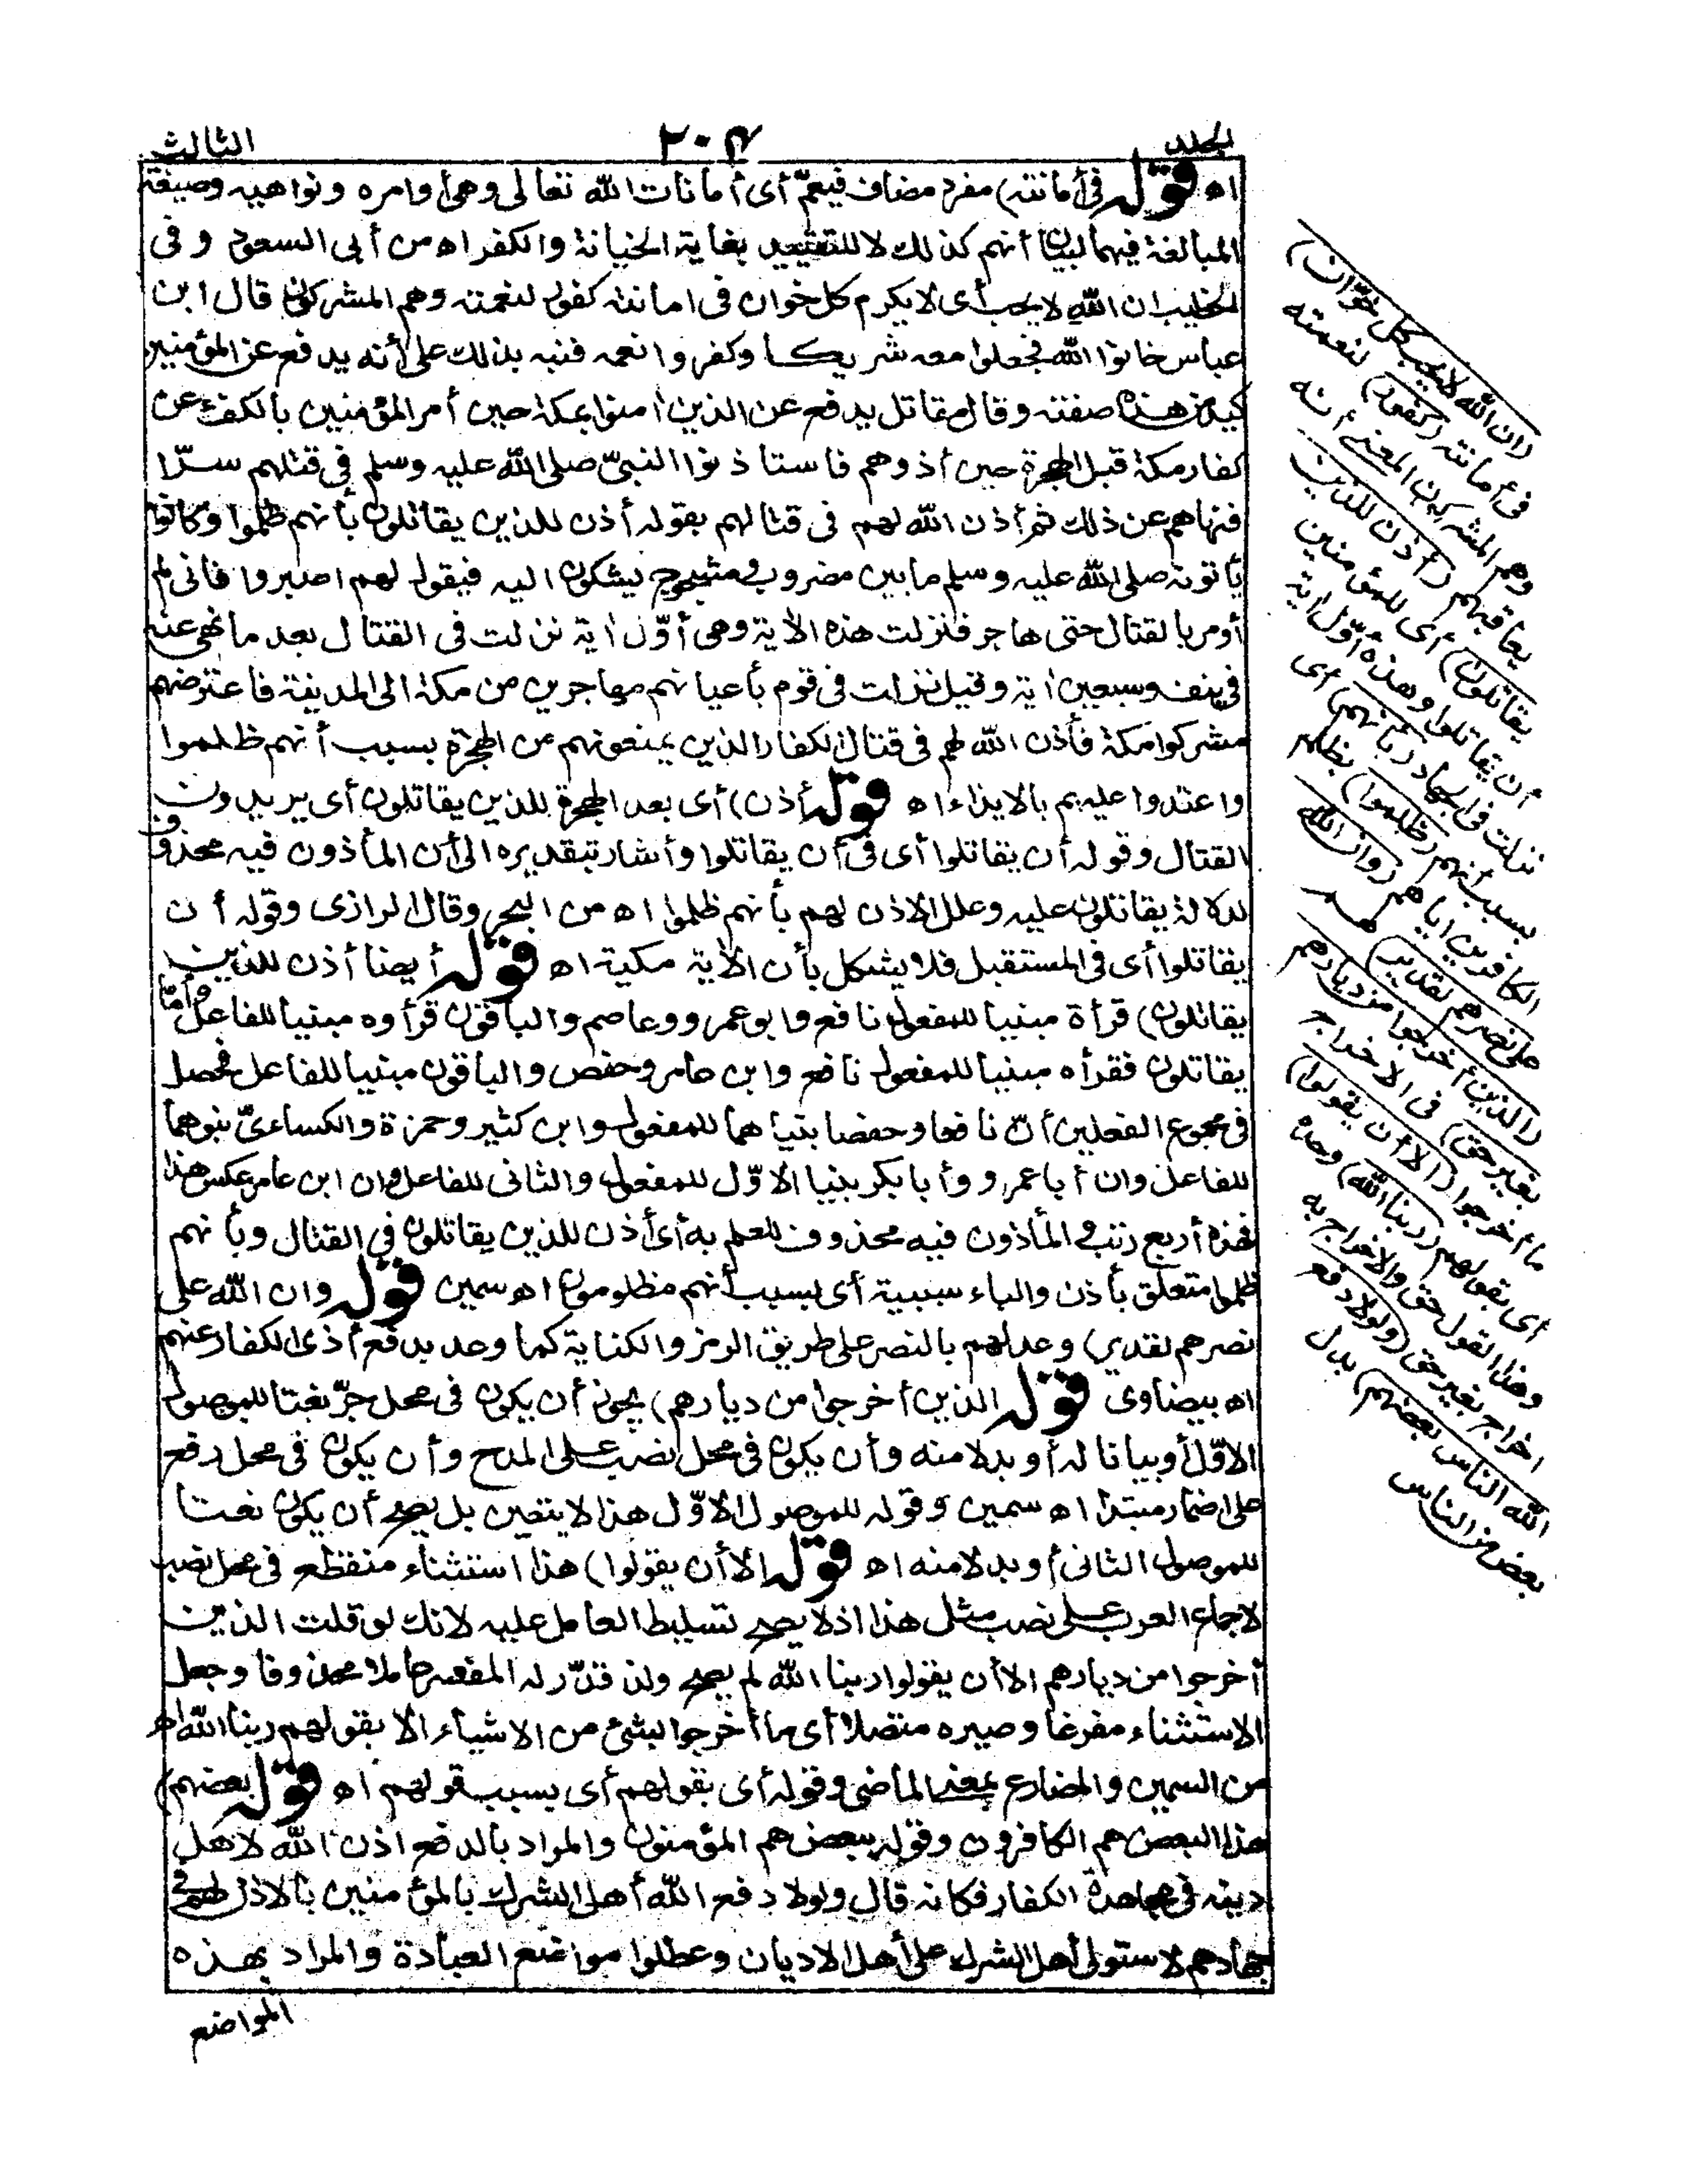 الجلد
٢٠٤
الثالث
اه قوله في أمانته) مفرد مضاف فيعمّ أى أمانات الله تعالى وهى أوامره ونواهيه وصيغة
المبالغة فيهما لبيان أنهم كذلك لا للتقييد بغاية الخيانة والكفر اه من أبى السعود وفى
الخطيب ان الله لا يحب أى لا يكرم كل خوان فى امانته كفور لنعمته وهم المشركون قال ابن
عباس خانوا الله فجعلوا معه شريكا وكفروا نعمه فنبه بذلك على أنه يدفع عن المؤمنين
كيد من هذه صفته وقال مقاتل يدفع عن الذين اٰمنوا بمكة حين أمر المؤمنين بالكف عن
كفار مكة قبل الهجرة حين أذوهم فاستاذنوا النبىّ صلى الله عليه وسلم فى قتلهم سرّا
فنهاهم عن ذلك ثم أذن الله لهم فى قتالهم بقوله أذن للذين يقاتلون بأنهم ظلموا وكانوا
يأتونه صلى الله عليه وسلم ما بين مضروب ومشجوج يشكون اليه فيقول لهم اصبروا فانى لم
أومر بالقتال حتى هاجر فنزلت هذه الاٰية وهى أوّل اٰية نزلت فى القتال بعد ما نهى عنه
فى نيف وسبعين اٰية وقيل نزلت فى قوم بأعيانهم مهاجرين من مكة الى المدينة فاعترضهم
مشركوا مكة فأذن الله لهم فى قتال الكفار الذين يمنعونهم من الهجرة بسبب أنهم ظلموا
واعتدوا عليهم بالايذاء اه قوله أذن) أى بعد الهجرة للذين يقاتلون أى يريدون
القتال وقوله أن يقاتلوا أى فى أن يقاتلوا وأشار بتقديره الى أن المأذون فيه محذوف
لدلالة يقاتلون عليه وعلل الاذن لهم بأنهم ظلموا اه من البحر وقال الرازى وقوله أن
يقاتلوا أى فى المستقبل فلا يشكل بأن الاٰية مكية اه قوله أيضا أذن للذين
يقاتلون) قرأة مبنيا للمفعول نافع وابو عمرو وعاصم والباقون قرأوه مبنيا للفاعل وأمّا
يقاتلون فقرأه مبنيا للمفعول نافع وابن عامر وحفص والباقون مبنيا للفاعل فحصل
فى مجموع الفعلين أنّ نافعا وحفصا بنياهما للمفعول وابن كثير وحمزة والكسائىّ بنوهما
للفاعل وان أبا عمرو وأبا بكر بنيا الاوّل للمفعول والثانى للفاعل وان ابن عامر عكس هذا
فهذه أربع رتب والمأذون فيه محذوف للعلم به أى أذن للذين يقاتلون فى القتال وبأنهم
ظلموا متعلق بأذن والباء سببية أى بسبب أنهم مظلومون اه سمين قوله وان الله على
نصرهم لقدير) وعد لهم بالنصر على طريق الرمز والكناية كما وعد بدفع أذى الكفار عنهم
اه بيضاوى قوله الذين أخرجوا من ديارهم) يجوز أن يكون فى محل جرّ نعتا للموصول
الاوّل أو بيانا له أو بدلا منه وأن يكون فى محل نصب على المدح وأن يكون فى محل رفع
على اضمار مبتدأ اه سمين وقوله للموصول الاوّل هذا لا يتعين بل يصح أن يكون نعتا
للموصول الثانى أو بدلا منه اه قوله الا أن يقولوا) هذا استثناء منقطع فى محل نصب
لاجماع العرب على نصب مثل هذا اذ لا يصح تسليط العامل عليه لانك لو قلت الذين
أخرجوا من ديارهم الا أن يقولوا ربنا الله لم يصح ولذ قدّر له المفسر عاملا محذوفا وجعل
الاستثناء مفرغا وصيره متصلا أى ما أخرجوا بشئ من الاشياء الا بقولهم ربنا الله اه
من السمين والمضارع بمعنى الماضى وقوله أى بقولهم أى بسبب قولهم اه قوله بعضهم)
هذا البعض هم الكافرون وقوله ببعض هم المؤمنون والمراد بالدفع اذن الله لاهل
دينه فى مجاهدة الكفار فكانه قال ولولا دفع الله أهل الشرك بالمؤمنين بالاذن لهم فى
جهادهم لاستولى أهل الشرك على أهل الاديان وعطلوا مواضع العبادة والمراد بهذه
المواضع
(ان الله لا يحب كل خوّان)
فى أمانته (كفور) لنعمته
وهم المشركون المعنى أنه
يعاقبهم (أذن للذين
يقاتلون) أى للمؤمنين
أن يقاتلوا وهذه أوّل اٰية
نزلت فى الجهاد (بأنهم) أى
بسبب أنهم (ظلموا) بظلم
الكافرين اياهم (وان الله
على نصرهم لقدير) هم
(الذين أخرجوا من ديارهم
بغير حق) فى الاخراج
ما أخرجوا (الا أن يقولوا)
أى بقولهم (ربنا الله) وحده
وهذا القول حق والاخراج به
اخراج بغير حق (ولولا دفع
الله الناس بعضهم) بدل
بعض من الناس